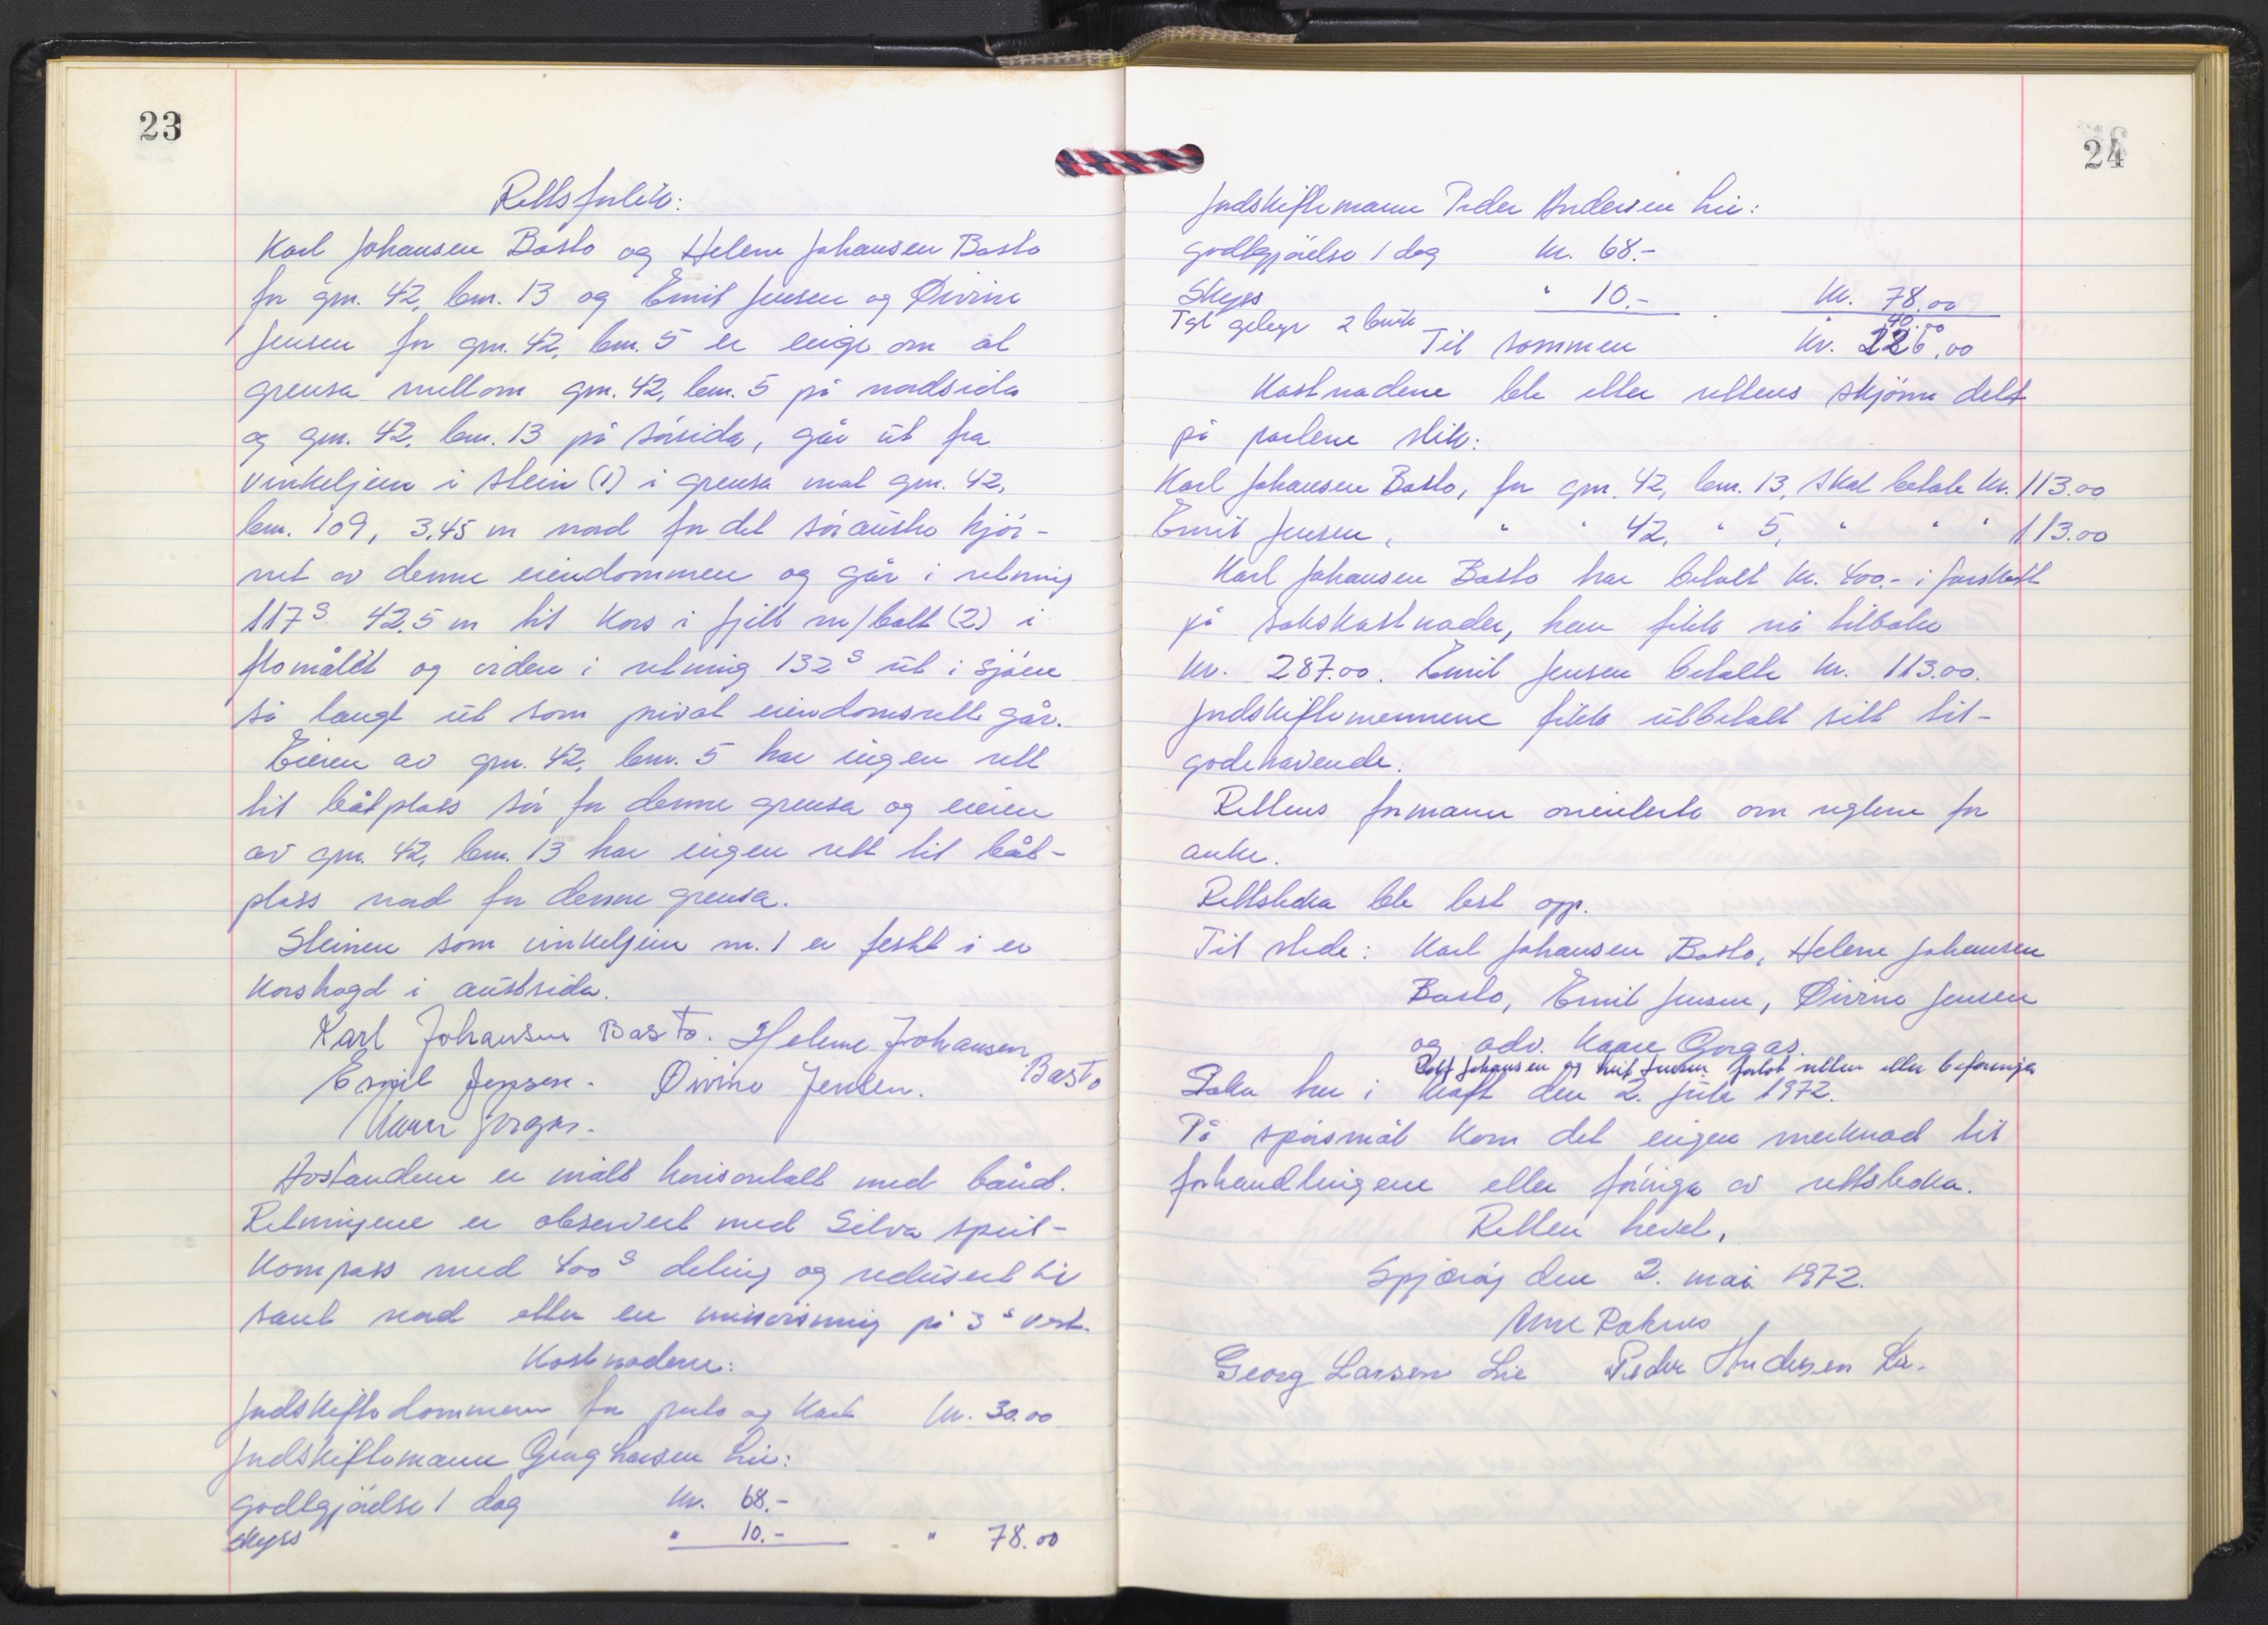 23
Rettsforlik:
Karl Johansen Bastø og Helene Johansen Bastø
for gnr. 42, bnr. 13 og Emil Jensen og Øivine
Jensen for gnr. 42, bnr. 5 er enige om at
grensa mellom gnr. 42, bnr. 5 på nordsida
og gnr. 42, bnr. 13 på sørsida, går ut fra
vinkeljern i stein (1) i grensa mot gnr. 42,
bnr. 109, 3,45 m nord for det søraustre hjør-
net av denne eiendommen og går i retning
117g 42,5 m til kors i fjell m/bolt (2) i
flomålet og videre i retning 132g ut i sjøen
så langt ut som privat eiendomsrett går.
Eieren av gnr. 42, bnr. 5 har ingen rett
til båtplass sør for denne grensa og eieren
av gnr. 42, bnr. 13 har ingen rett til båt-
plass nord for denne grensa.
Steinen som vinkeljern nr. 1 er festet i er
korshogd i austsida.
Karl Johansen Bastø. Helene Johansen
Bastø
Emil Jensen. Øivine Jensen.
Kaare Gorgas.
Avstandene er målt horisontalt med bånd.
Retningene er observert med Silva speil-
kompass med 400g deling og redusert til
sant nord etter en misvisning på 3g vest.
Kostnadene:
Jordskiftedommeren for porto og kart kr. 30.00
Jordskiftemann Georg Larsen Lie:
godtgjørelse 1 dag kr. 68.-
Skyss " 10.- " 78.00
24
Jordskiftemann Peder Andersen Lie:
godtgjørelse 1 dag kr. 68.-
Skyss " 10.- kr. 78.00
Tgl. gebyr 2 bruk " 40.00
Til sammen kr. 226.00
Kostnadene ble etter rettens skjønn delt
på partene slik:
Karl Johansen Bastø, for gnr. 42, bnr. 13, skal betale kr. 113.00
Emil Jensen, " " 42, " 5, " " " 113.00
Karl Johansen Bastø har betalt kr. 400.- i forskott
på sakskostnader, han fikk nå tilbake
kr. 287.00. Emil Jensen betalte kr. 113.00.
Jordskiftemennene fikk utbetalt sitt til-
godehavende.
Rettens formann orienterte om reglene for
anke.
Rettsboka ble lest opp.
Til stede: Karl Johansen Bastø, Helene Johansen
Bastø, Emil Jensen, Øivine Jensen
og adv. Kaare Gorgas.
Johansen og Emil Jensen forlot retten etter befaringa
Saka trer i kraft den 2. juli 1972.
På spørsmål kom det ingen merknad til
forhandlingene eller føringa av rettsboka.
Retten hevet,
Spjærøy den 2. mai 1972.
Georg Larsen Lie Peder Andersen Lie.